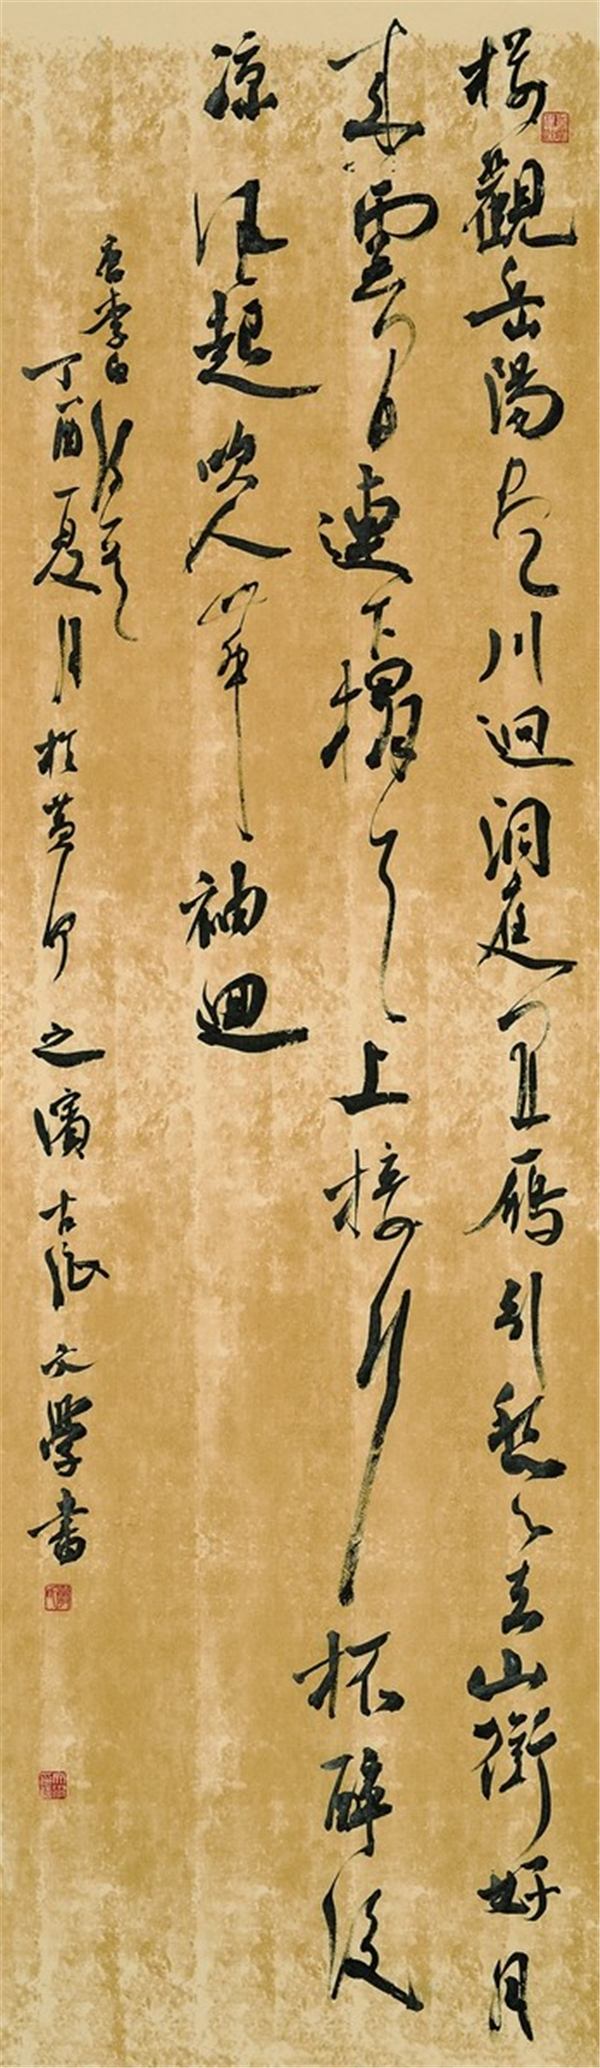 楼觀岳陽尽川迴洞庭開雁引愁心去山銜好月
来雲间連下榻天上接行杯醉後
凉风起吹人舞袖迴
唐李白
丁酉夏月於黄河之濱古浪文學書